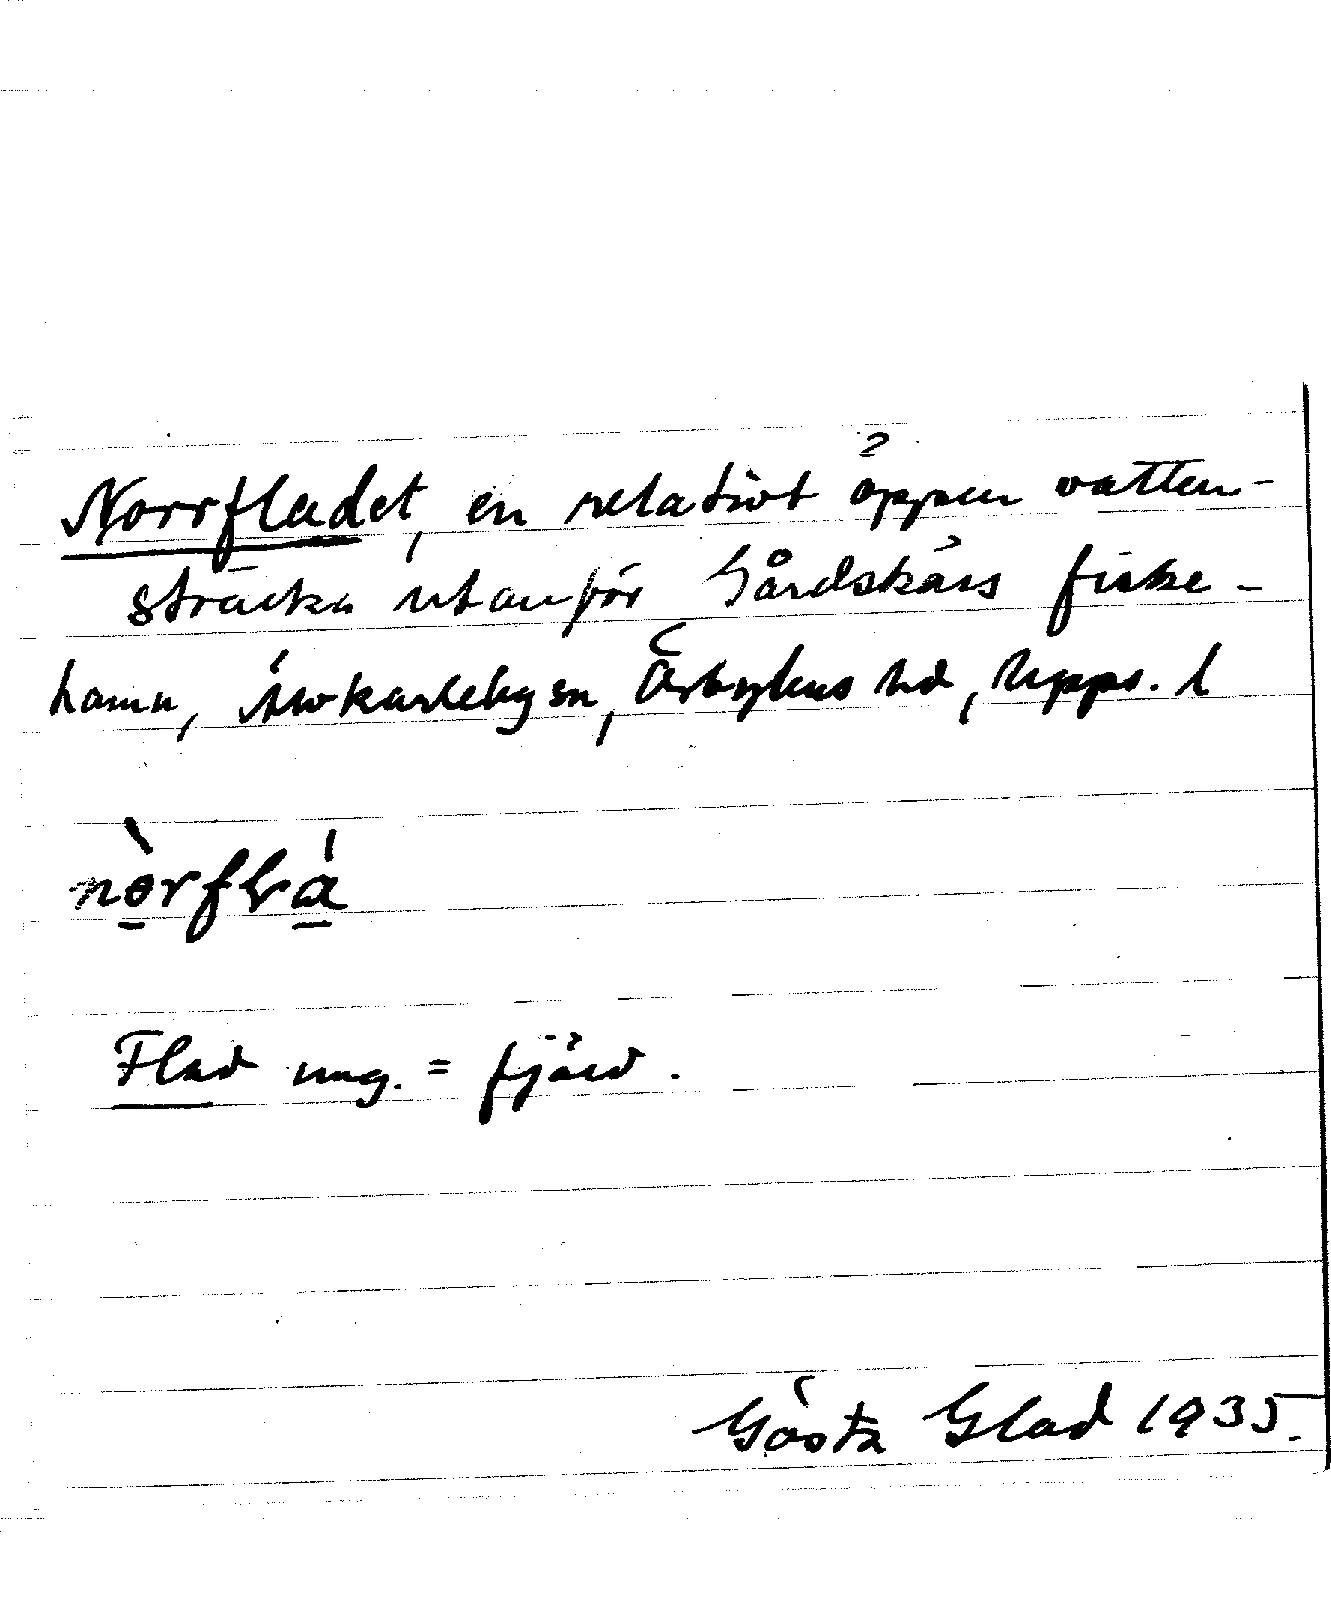 Norrfladet, en relativt öppen vatten-
sträcka utanför Gårdskärs fiske-
hamn, Älvkarleby sn, Örbyhus hd, Upps. l
Flad ung. = fjärd.
Gösta Glad 1935.